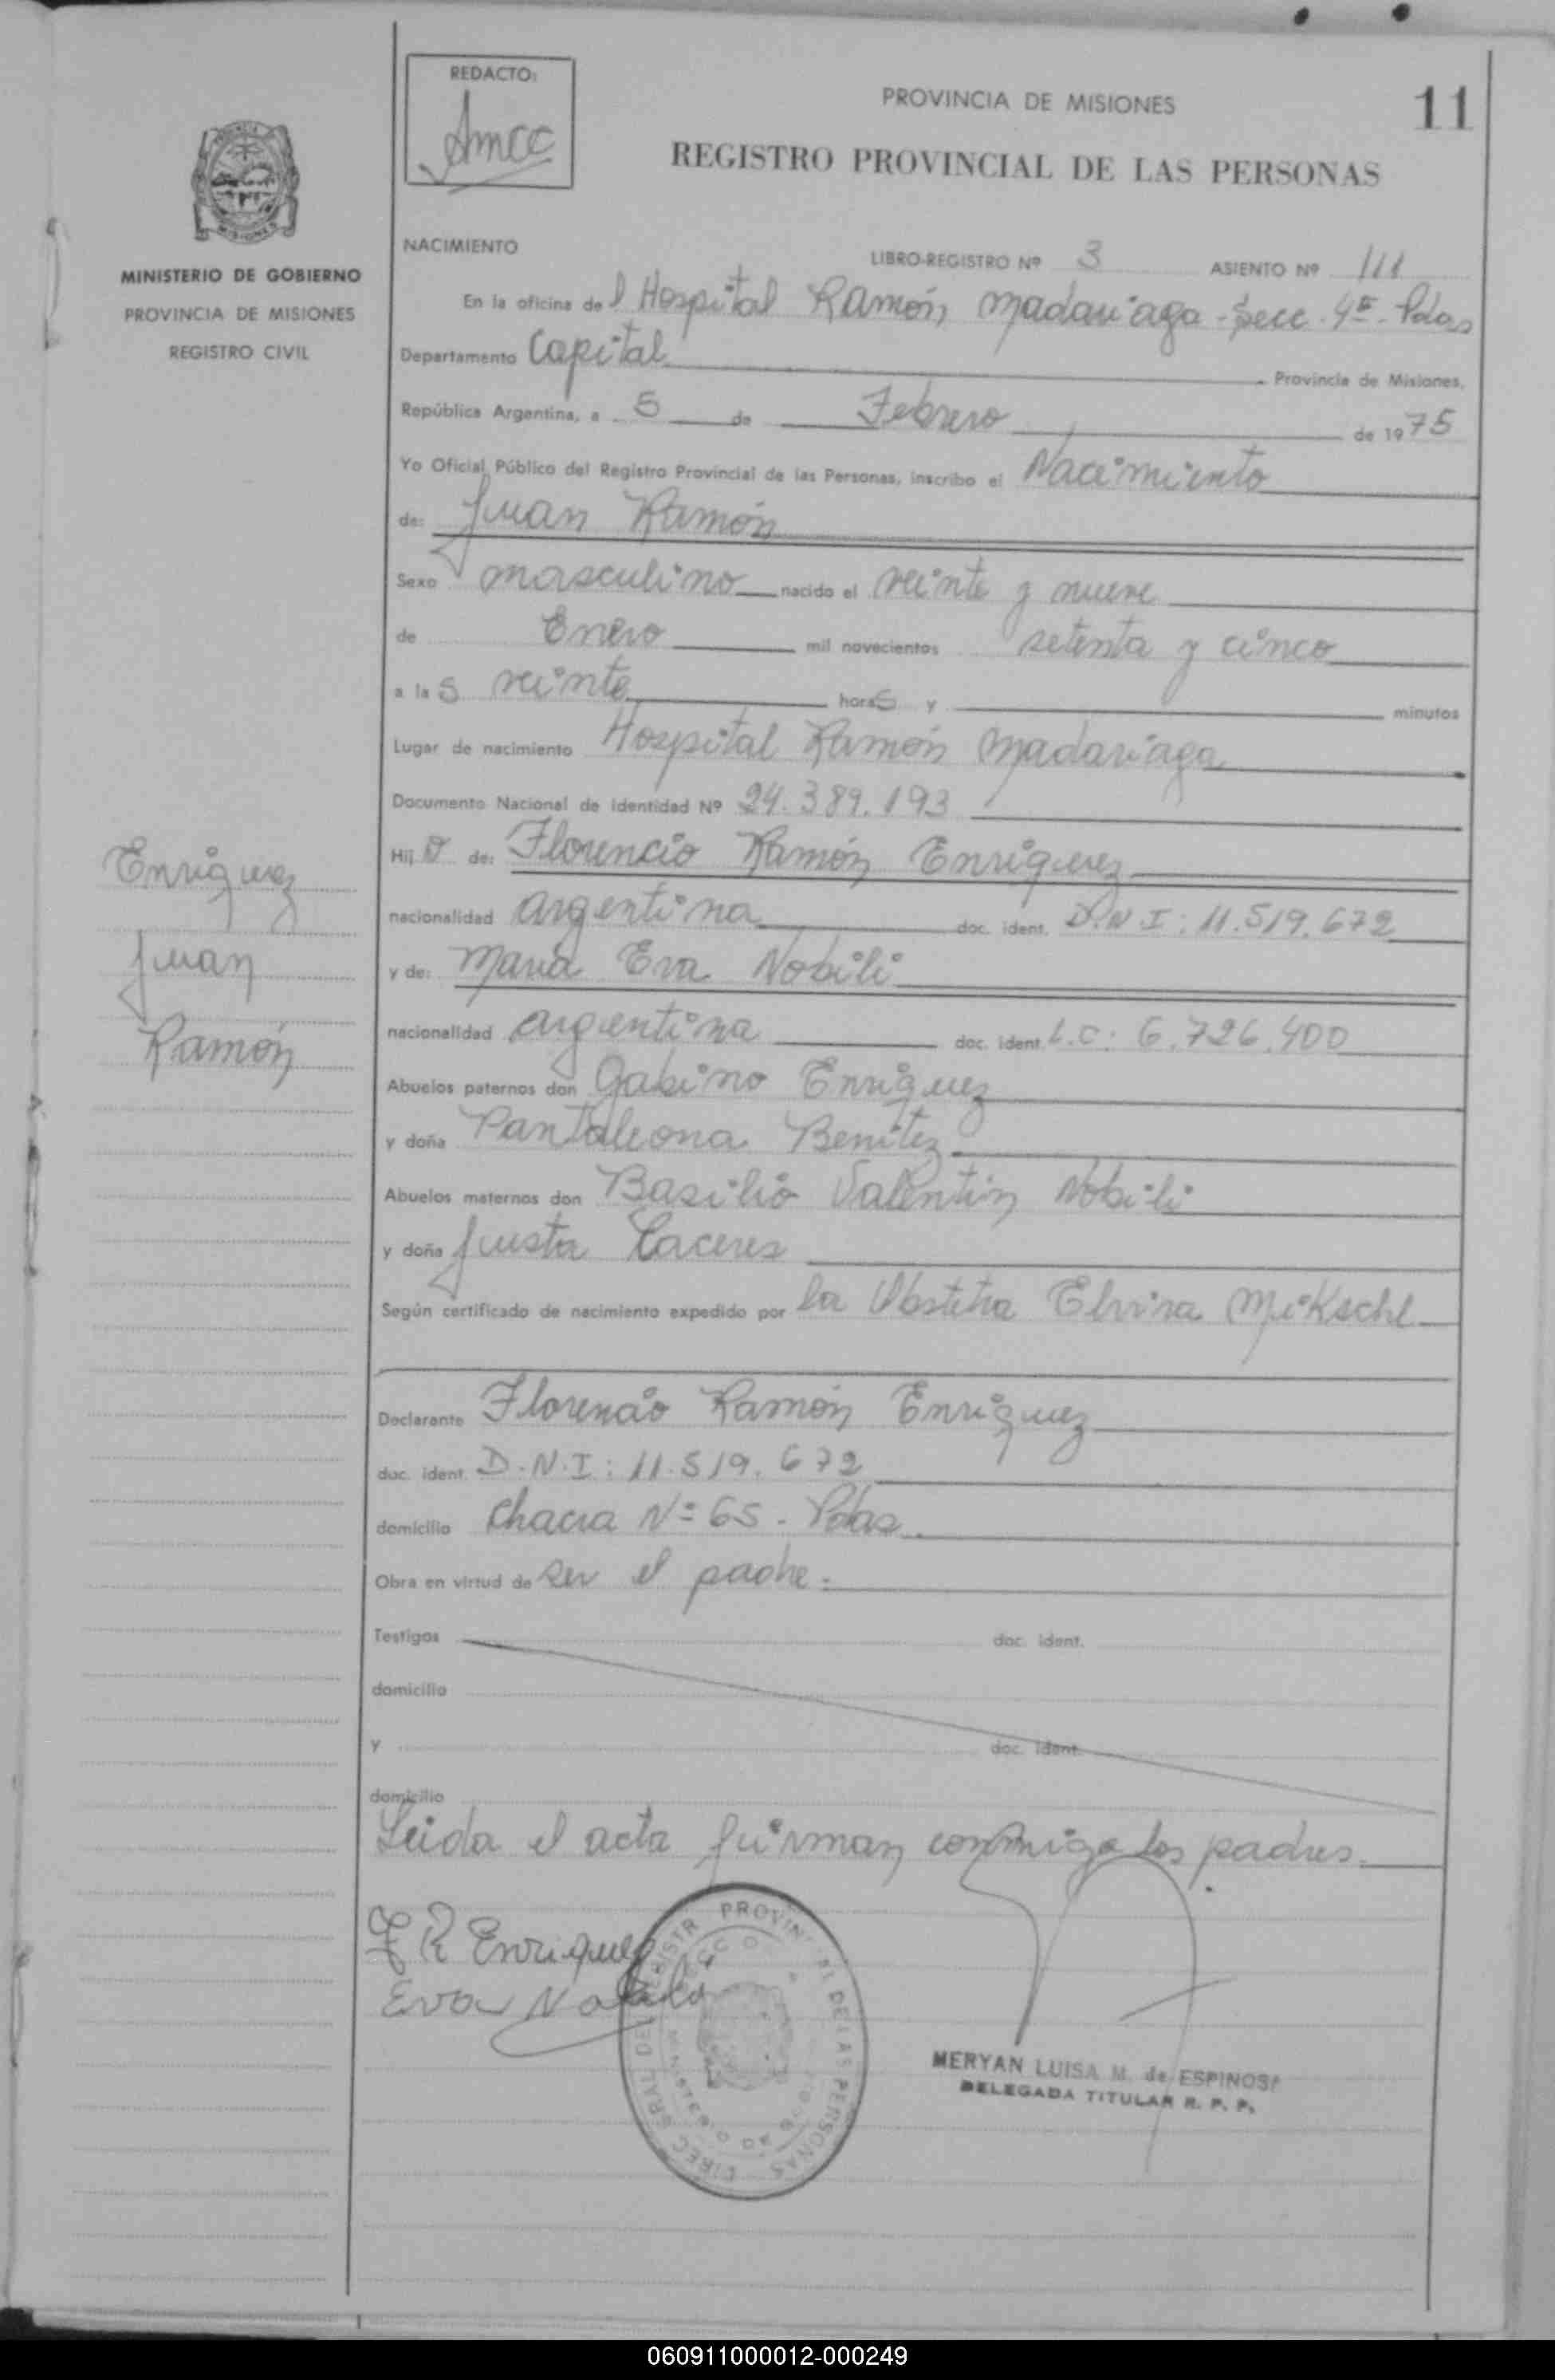 REDACTO:
Amcc
PROVINCIA DE MISIONES
11
REGISTRO PROVINCIAL DE LAS PERSONAS
MINISTERIO DE GOBIERNO
PROVINCIA DE MISIONES
REGISTRO CIVIL
NACIMIENTO
LIBRO-REGISTRO Nº 3 ASIENTO Nº 111
En la oficina del Hospital Ramón Madariaga - Secc. 4ª - Pdas
Departamento Capital Provincia de Misiones,
República Argentina, a 5 de Febrero de 1975
Yo Oficial Público del Registro Provincial de las Personas, inscribo el Nacimiento
de: Juan Ramón
Sexo masculino nacido el veinte y nueve
de Enero mil novecientos setenta y cinco
a las veinte horas y minutos
Lugar de nacimiento Hospital Ramón Madariaga
Documento Nacional de Identidad Nº 24.389.193
Hijo de: Florencio Ramón Enriquez
nacionalidad argentina doc. ident. D.N.I: 11.519.672
y de: Maria Eva Nobili
nacionalidad argentina doc. ident. L.C: 6.726.400
Abuelos paternos don Gabino Enriquez
y doña Pantaleona Benitez
Abuelos maternos don Basilio Valentin Nobili
y doña Justa Caceres
Según certificado de nacimiento expedido por la Obstetra Elvira Mikschl
Declarante Florencio Ramón Enriquez
doc. ident. D.N.I: 11.519.672
domicilio Chacra Nº 65 - Pdas.
Obra en virtud de ser el padre.
Testigos doc. ident.
domicilio
y doc. ident.
domicilio
Leida el acta firman conmigo los padres.
Enriquez
Juan
Ramón
F R Enriquez
Eva Nobili
PROVIN DE LAS PERSONAS
MERYAN LUISA M. de ESPINOSA
DELEGADA TITULAR R. P. P.
060911000012-000249